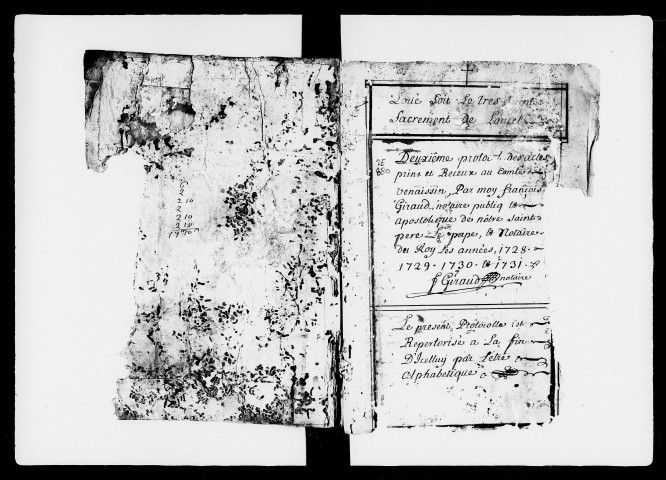 6
2
2 10
2
2 10
2 10
17 10
Loué Soit Le tres S
Sacrement de Lautel
2E
880
Deuxiême proto des actes
prins et Receux au Comté
venaissin, Par moy françois
Giraud, notaire publiq et
apostolique de nôtre saint
pere Le pape, et Notaire
du Roy Les années, 1728.
1729. 1730. et 1731.
f Giraud notaire
Le present Protocolle est
Repertorisé a La fin
D'Icelluy par Letre
alphabetique